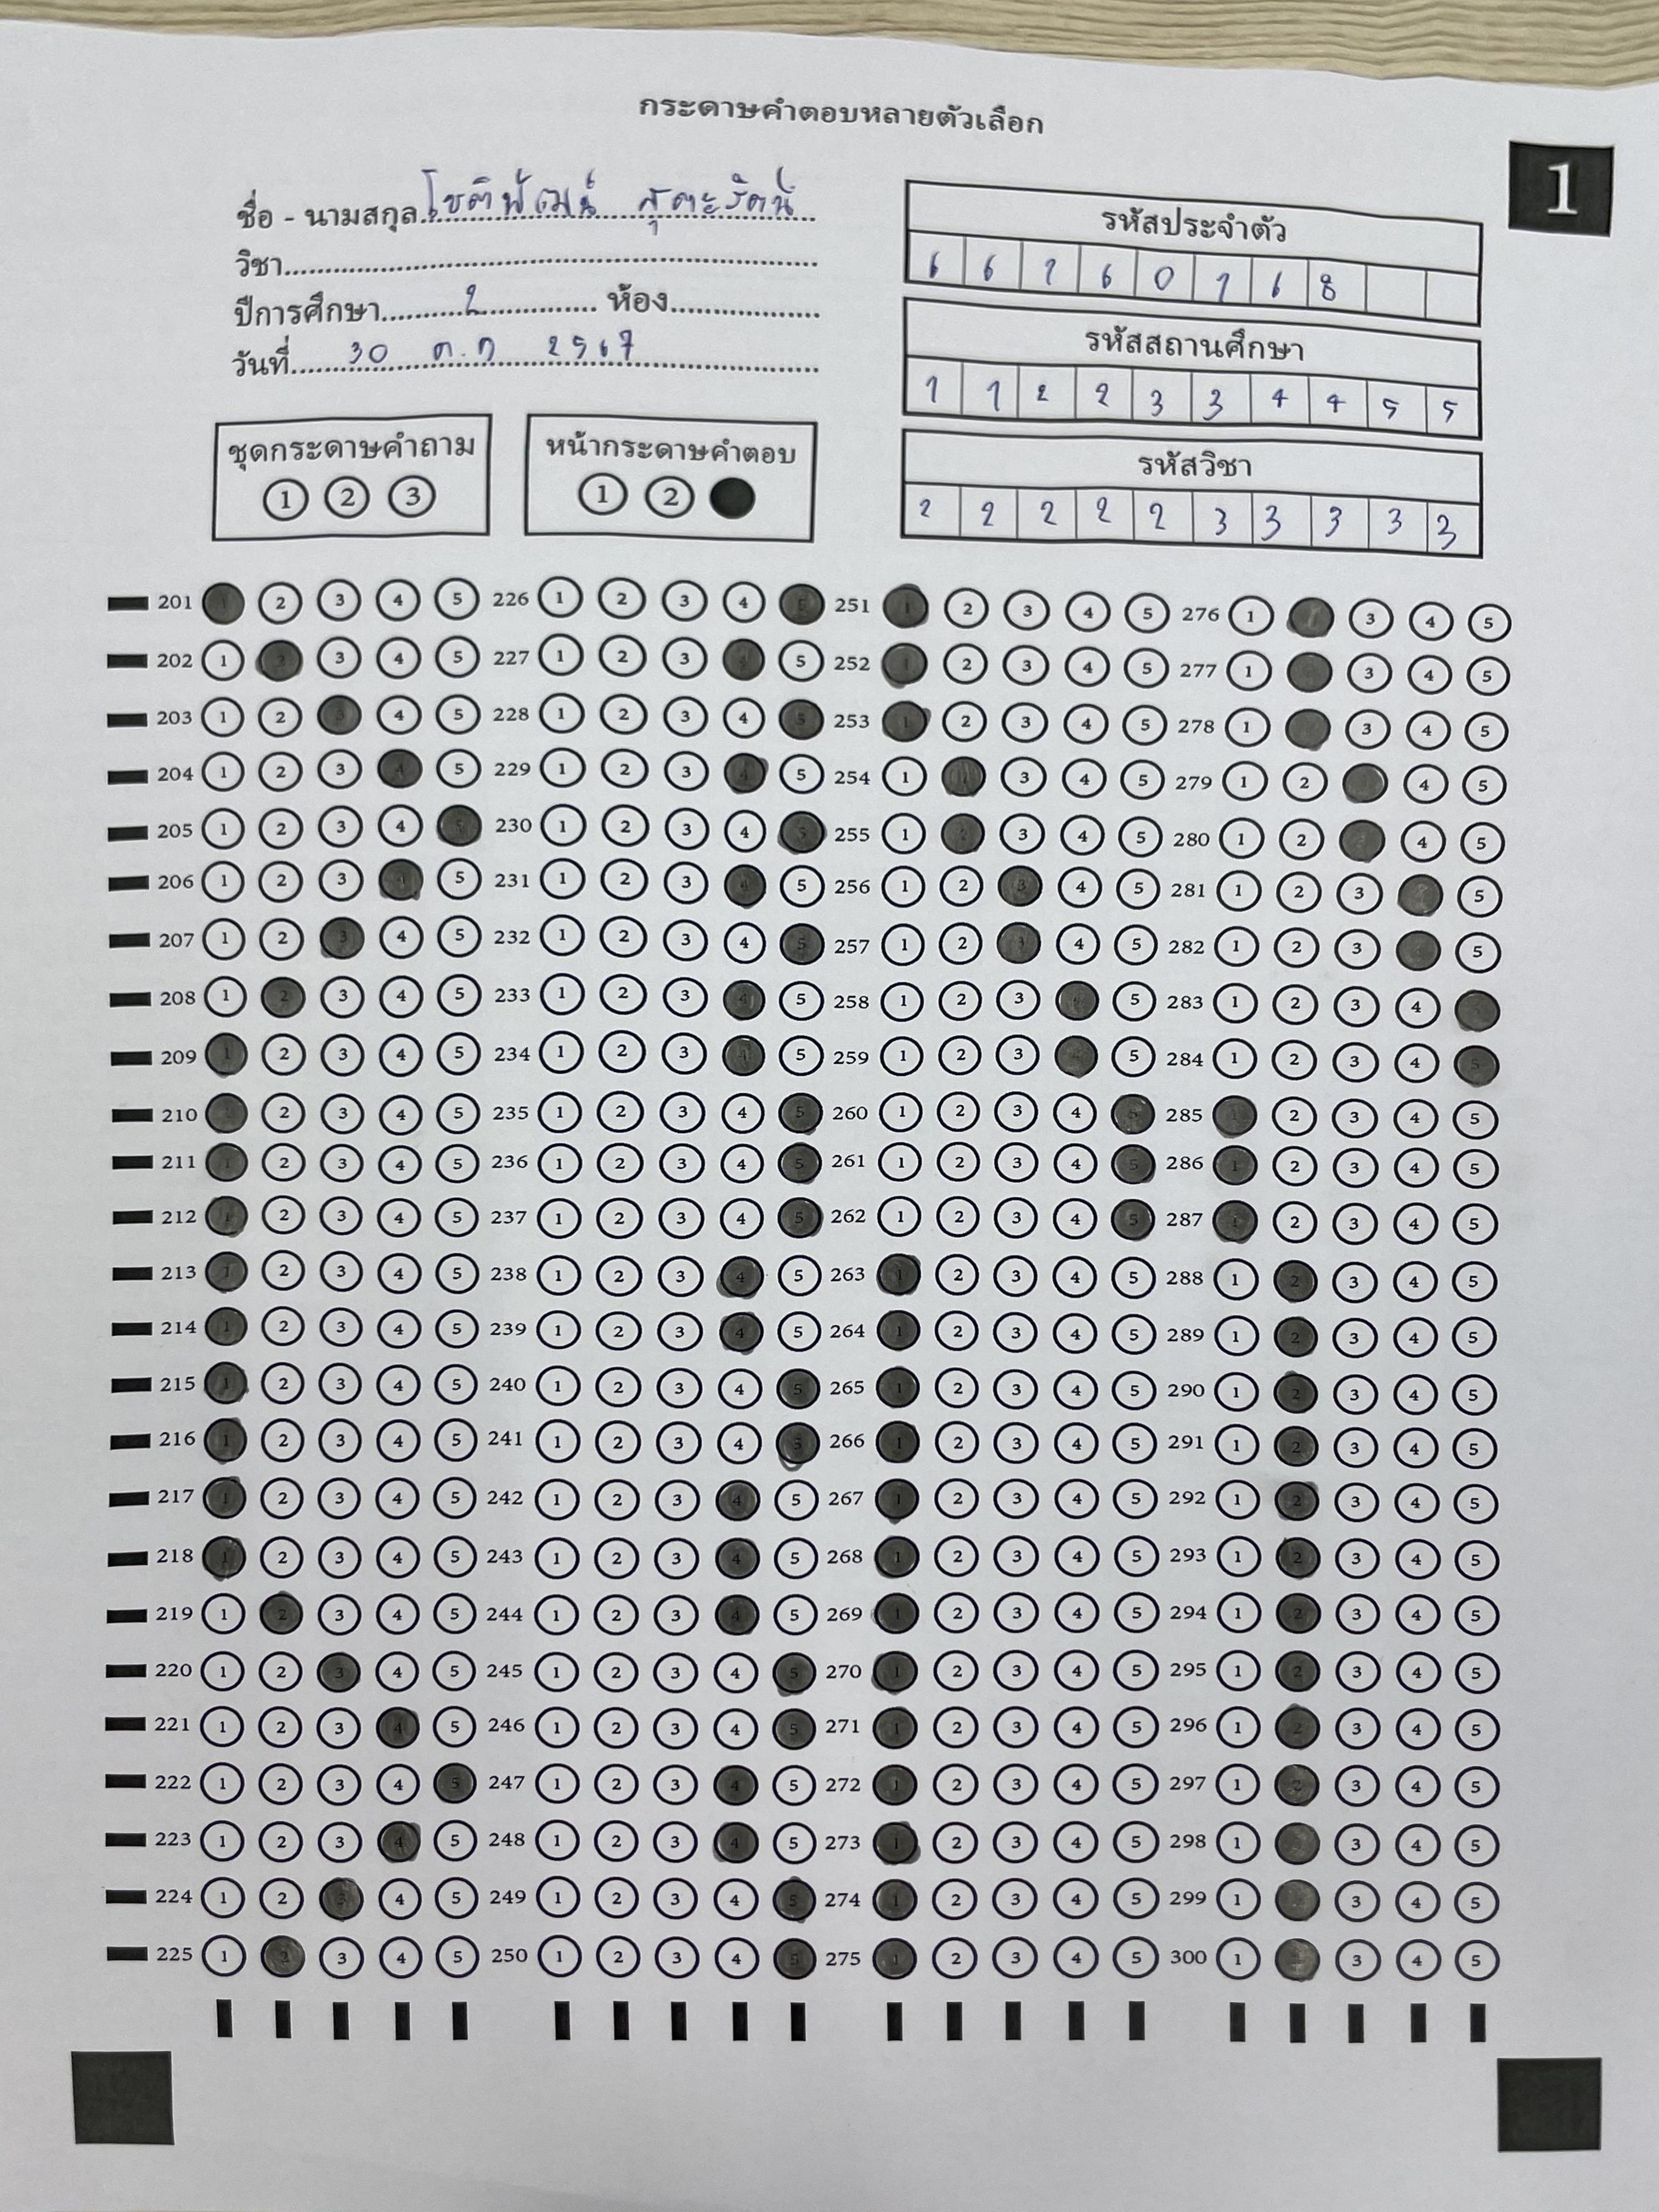 กระดาษคำตอบหลายตัวเลือก
1
ชื่อ - นามสกุล โชติพัฒน์ สุตะรัตน์
วิชา
ปีการศึกษา 2 ห้อง
วันที่ 30 ต.ค 2567
รหัสประจำตัว
6 6 1 6 0 1 6 8
รหัสสถานศึกษา
1 1 2 2 3 3 4 4 5 5
รหัสวิชา
2 2 2 2 2 3 3 3 3 3
ชุดกระดาษคำถาม
1 2 3
หน้ากระดาษคำตอบ
1 2
201 1 2 3 4 5 226 1 2 3 4 5 251 1 2 3 4 5 276 1 3 4 5
202 1 2 3 4 5 227 1 2 3 4 5 252 1 2 3 4 5 277 1 3 4 5
203 1 2 3 4 5 228 1 2 3 4 5 253 1 2 3 4 5 278 1 2 3 4 5
204 1 2 3 4 5 229 1 2 3 4 5 254 1 3 4 5 279 1 2 4 5
205 1 2 3 4 5 230 1 2 3 4 5 255 1 2 3 4 5 280 1 2 3 4 5
206 1 2 3 4 5 231 1 2 3 4 5 256 1 2 3 4 5 281 1 2 3 4 5
207 1 2 3 4 5 232 1 2 3 4 5 257 1 2 3 4 5 282 1 2 3 4 5
208 1 2 3 4 5 233 1 2 3 4 5 258 1 2 3 4 5 283 1 2 3 4 5
209 1 2 3 4 5 234 1 2 3 4 5 259 1 2 3 4 5 284 1 2 3 4 5
210 1 2 3 4 5 235 1 2 3 4 5 260 1 2 3 4 5 285 1 2 3 4 5
211 1 2 3 4 5 236 1 2 3 4 5 261 1 2 3 4 5 286 1 2 3 4 5
212 1 2 3 4 5 237 1 2 3 4 5 262 1 2 3 4 5 287 1 2 3 4 5
213 1 2 3 4 5 238 1 2 3 4 5 263 1 2 3 4 5 288 1 2 3 4 5
214 1 2 3 4 5 239 1 2 3 4 5 264 1 2 3 4 5 289 1 2 3 4 5
215 1 2 3 4 5 240 1 2 3 4 5 265 1 2 3 4 5 290 1 2 3 4 5
216 1 2 3 4 5 241 1 2 3 4 5 266 1 2 3 4 5 291 1 2 3 4 5
217 1 2 3 4 5 242 1 2 3 4 5 267 1 2 3 4 5 292 1 2 3 4 5
218 1 2 3 4 5 243 1 2 3 4 5 268 1 2 3 4 5 293 1 2 3 4 5
219 1 2 3 4 5 244 1 2 3 4 5 269 1 2 3 4 5 294 1 2 3 4 5
220 1 2 3 4 5 245 1 2 3 4 5 270 1 2 3 4 5 295 1 2 3 4 5
221 1 2 3 4 5 246 1 2 3 4 5 271 1 2 3 4 5 296 1 2 3 4 5
222 1 2 3 4 5 247 1 2 3 4 5 272 1 2 3 4 5 297 1 2 3 4 5
223 1 2 3 4 5 248 1 2 3 4 5 273 1 2 3 4 5 298 1 2 3 4 5
224 1 2 3 4 5 249 1 2 3 4 5 274 1 2 3 4 5 299 1 2 3 4 5
225 1 2 3 4 5 250 1 2 3 4 5 275 1 2 3 4 5 300 1 2 3 4 5